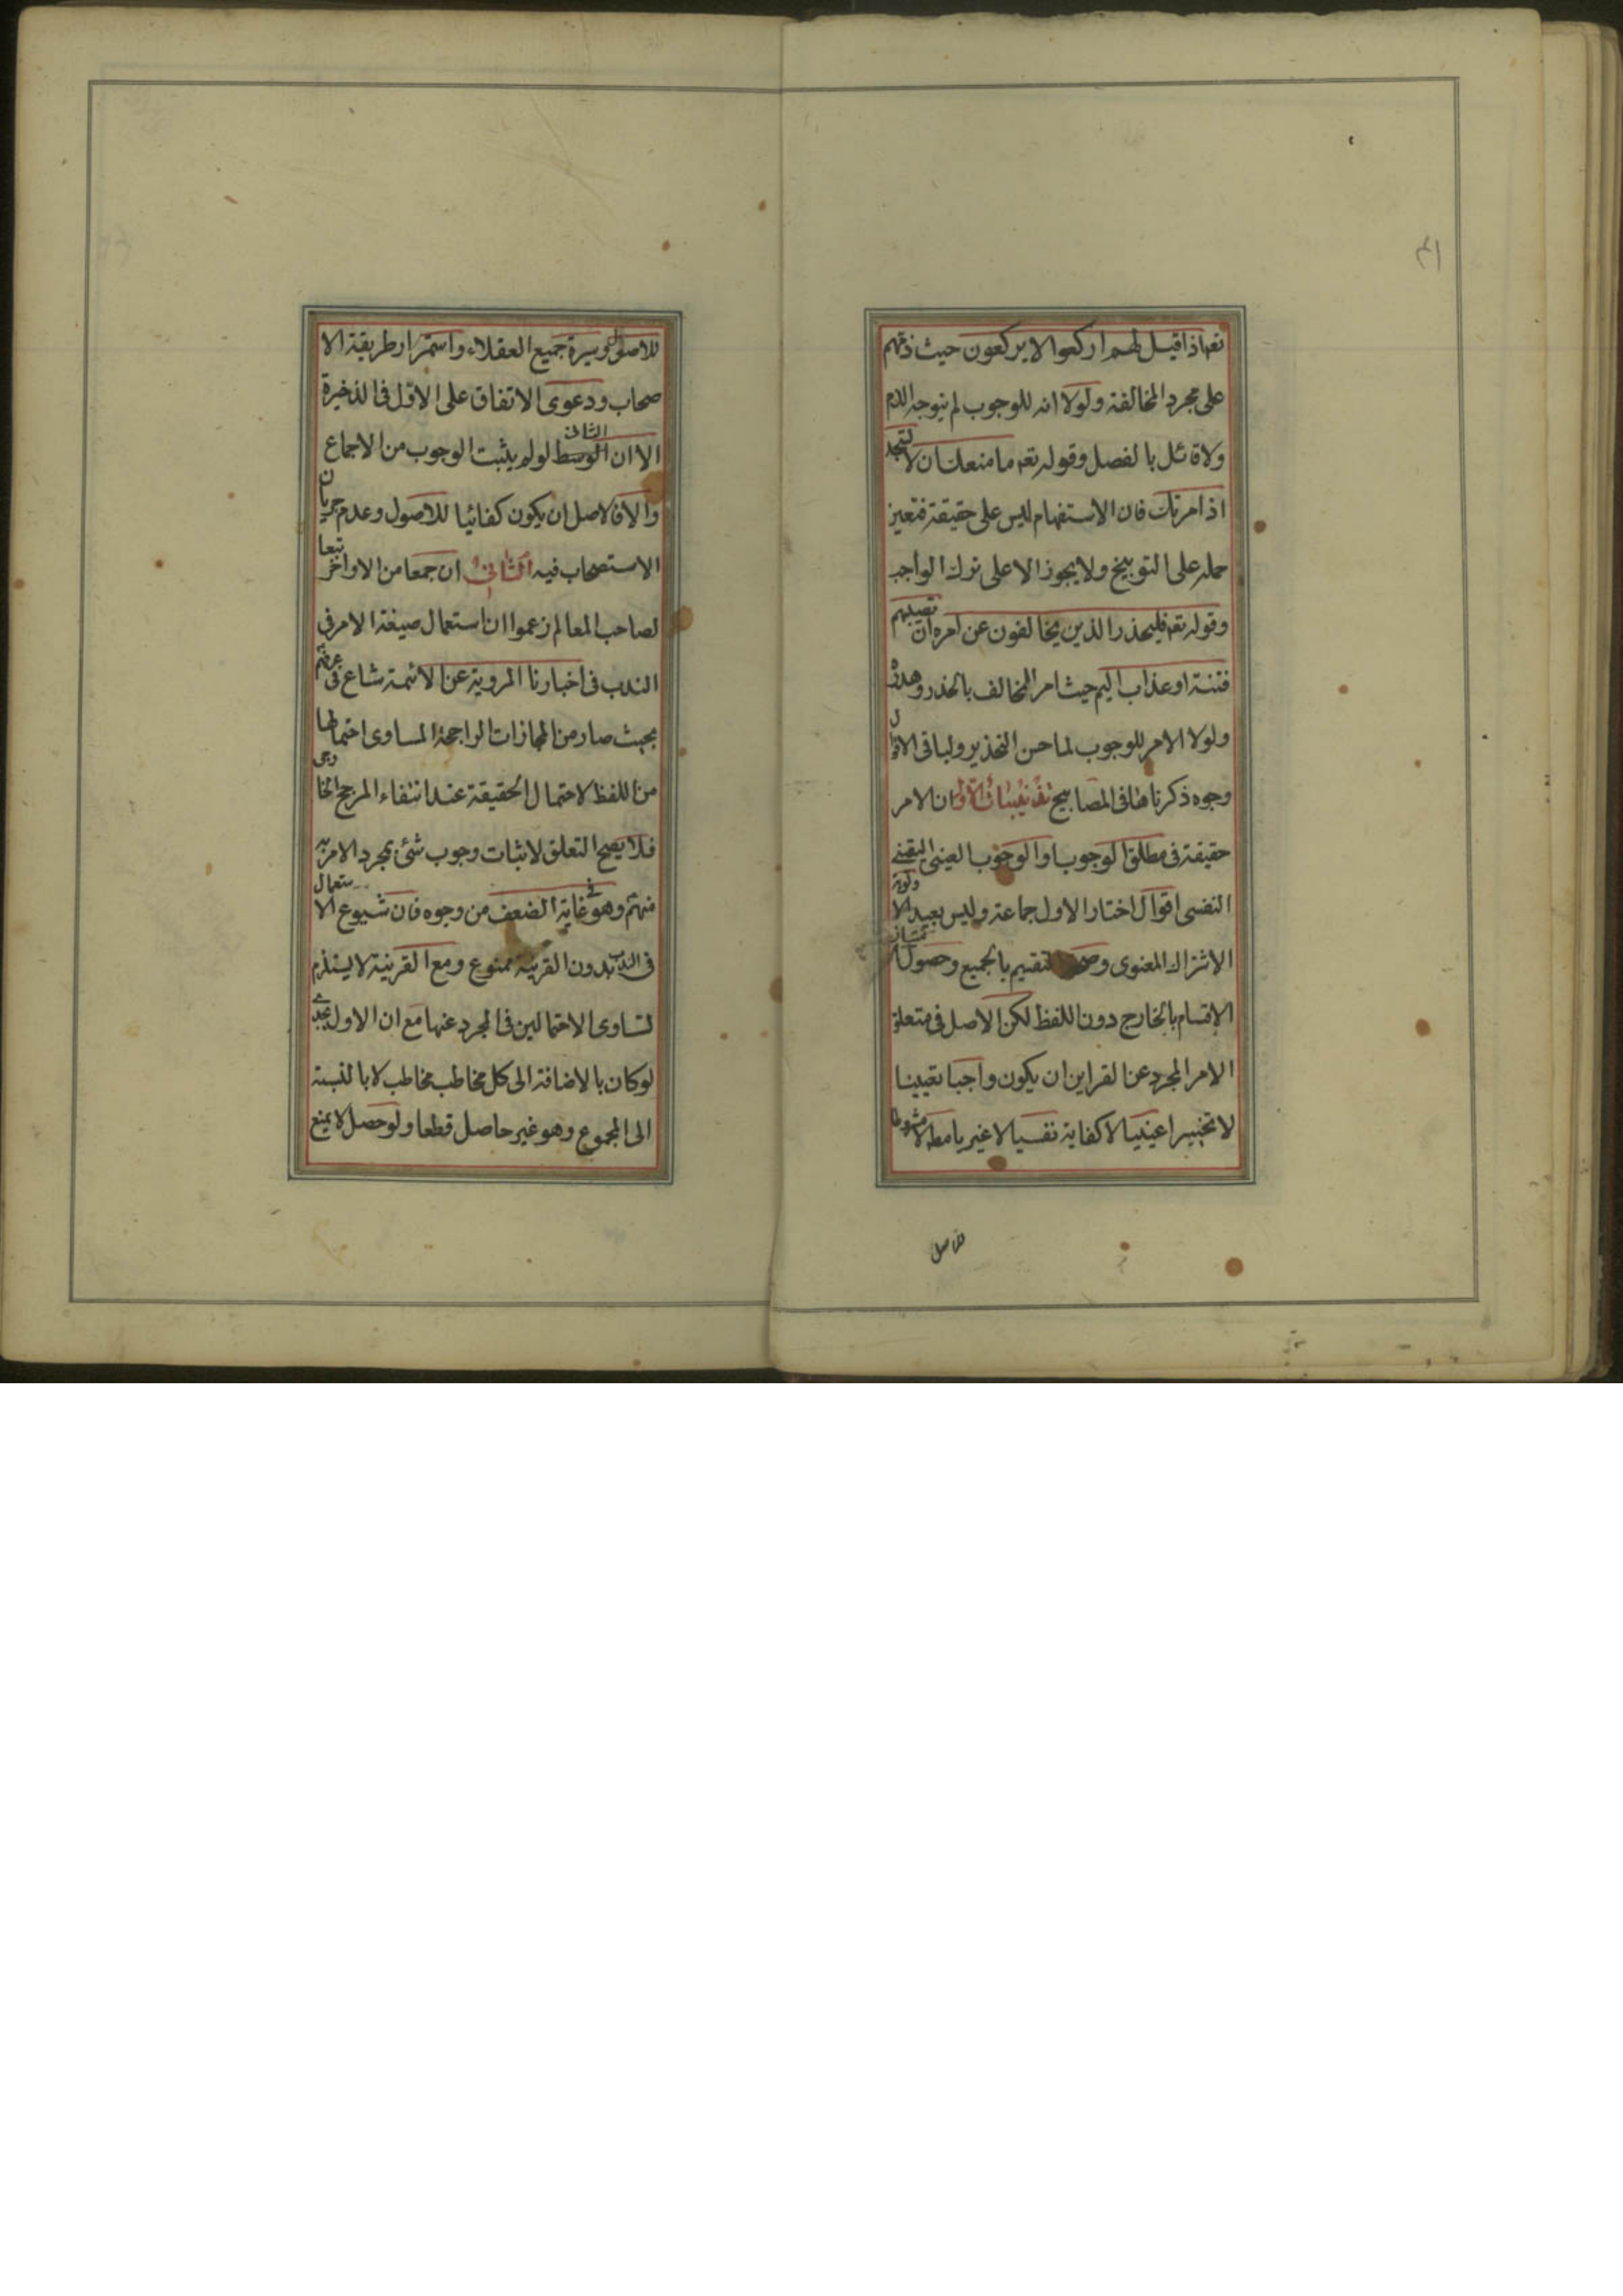 تعه اذا قيل لهم اركعوا لا يركعون حيث ذمّهم
على مجرد المخالفة ولولا انه للوجوب لم يتوجه الذم
ولا قائل بالفصل وقوله تعه ما منعك ان لا تسجد
اذ امرتك فان الاستفهام ليس على حقيقة فتعين
حمله على التوبيخ ولا يجوز الا على ترك الواجب
وقوله تعه فليحذر الذين يخالفون عن امره ان تصيبهم
فتنة او عذاب اليم حيث امر المخالف بالحذر وهدده
ولولا الامر للوجوب لما حسن التحذير ولباقى الاقوال
وجوه ذكرناها فى المصابيح تنبيهات الاول ان الامر
حقيقة فى مطلق الوجوب او الوجوب العينى التعينى
النفسى اقوال اختار الاول جماعة وليس بعيد الا ولوية
الاشتراك المعنوى وصحة التقسيم بالجميع وحصول
الاقسام بالخارج دون اللفظ لكن الاصل فى متعلق
الامر المجرد عن القراين ان يكون واجبا تعيينا
لا تخييرا عينيا لا كفاية نفسيا لا غيريا مطه لا مشروطا
للاصل
للاصول وسيرة جميع العقلاء واستمرار طريقة الا
صحاب ودعوى الاتفاق على الاول فى الذخيرة
الا ان الوسط الثانى لو لم يثبت الوجوب من الاجماع
والا فالاصل ان يكون كفائيا للاصول وعدم جريان
الاستصحاب فيه الثانى ان جمعا من الاواخر تبعا
لصاحب المعالم زعموا ان استعمال صيغة الامر فى
الندب فى اخبارنا المروية عن الائمة شاع فى عرفهم
بحيث صار من المجازات الراجحة المساوى احتمالها
من اللفظ لاحتمال الحقيقة عند انتفاء المرجح الخارجى
فلا يصح التعلق لاثبات وجوب شئ بمجرد الامر به
منهم وهو فى غاية الضعف من وجوه فان شيوع الاستعمال
فى الندب بدون القرينة ممنوع ومع القرينة لا يستلزم
تساوى الاحتمالين فى المجرد عنها مع ان الاول يجدى
لو كان بالاضافة الى كل مخاطب مخاطب لا بالنسبة
الى المجموع وهو غير حاصل قطعا ولو حصل لا يمنع